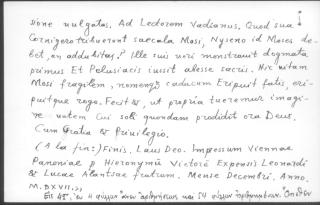 sione vulgatas. Ad Lectorem Vadianus. Quod sua
Cornigero tribuerunt saecula Mosi, Nyseno id Moses de-
bet, an addubitas? Ille sui veri monstravit dogmata
primus Et Pelusiacis iussit abesse sacris. Hic vitam
Mosi fragilem, nomenque caducum Eripuit fatis, eri-
puitque rogo. Fecit &, ut propria tueremur imagi-
ne vatem Cui soli quondam prodidit ora Deus.
Cum Gratia & Privilegio.
(A la fin:) Finis. Laus Deo. Impressum Viennae
Panoniae p Hieronymũ Victorẽ Expensis Leonardi
& Lucae Alantsae fratrum. Mense Decembri. Anno.
M.DXVII.»,
Εἰς 4º, 4 φύλλων ἄνευ ἀριθμήσεως καὶ 54 φύλλων